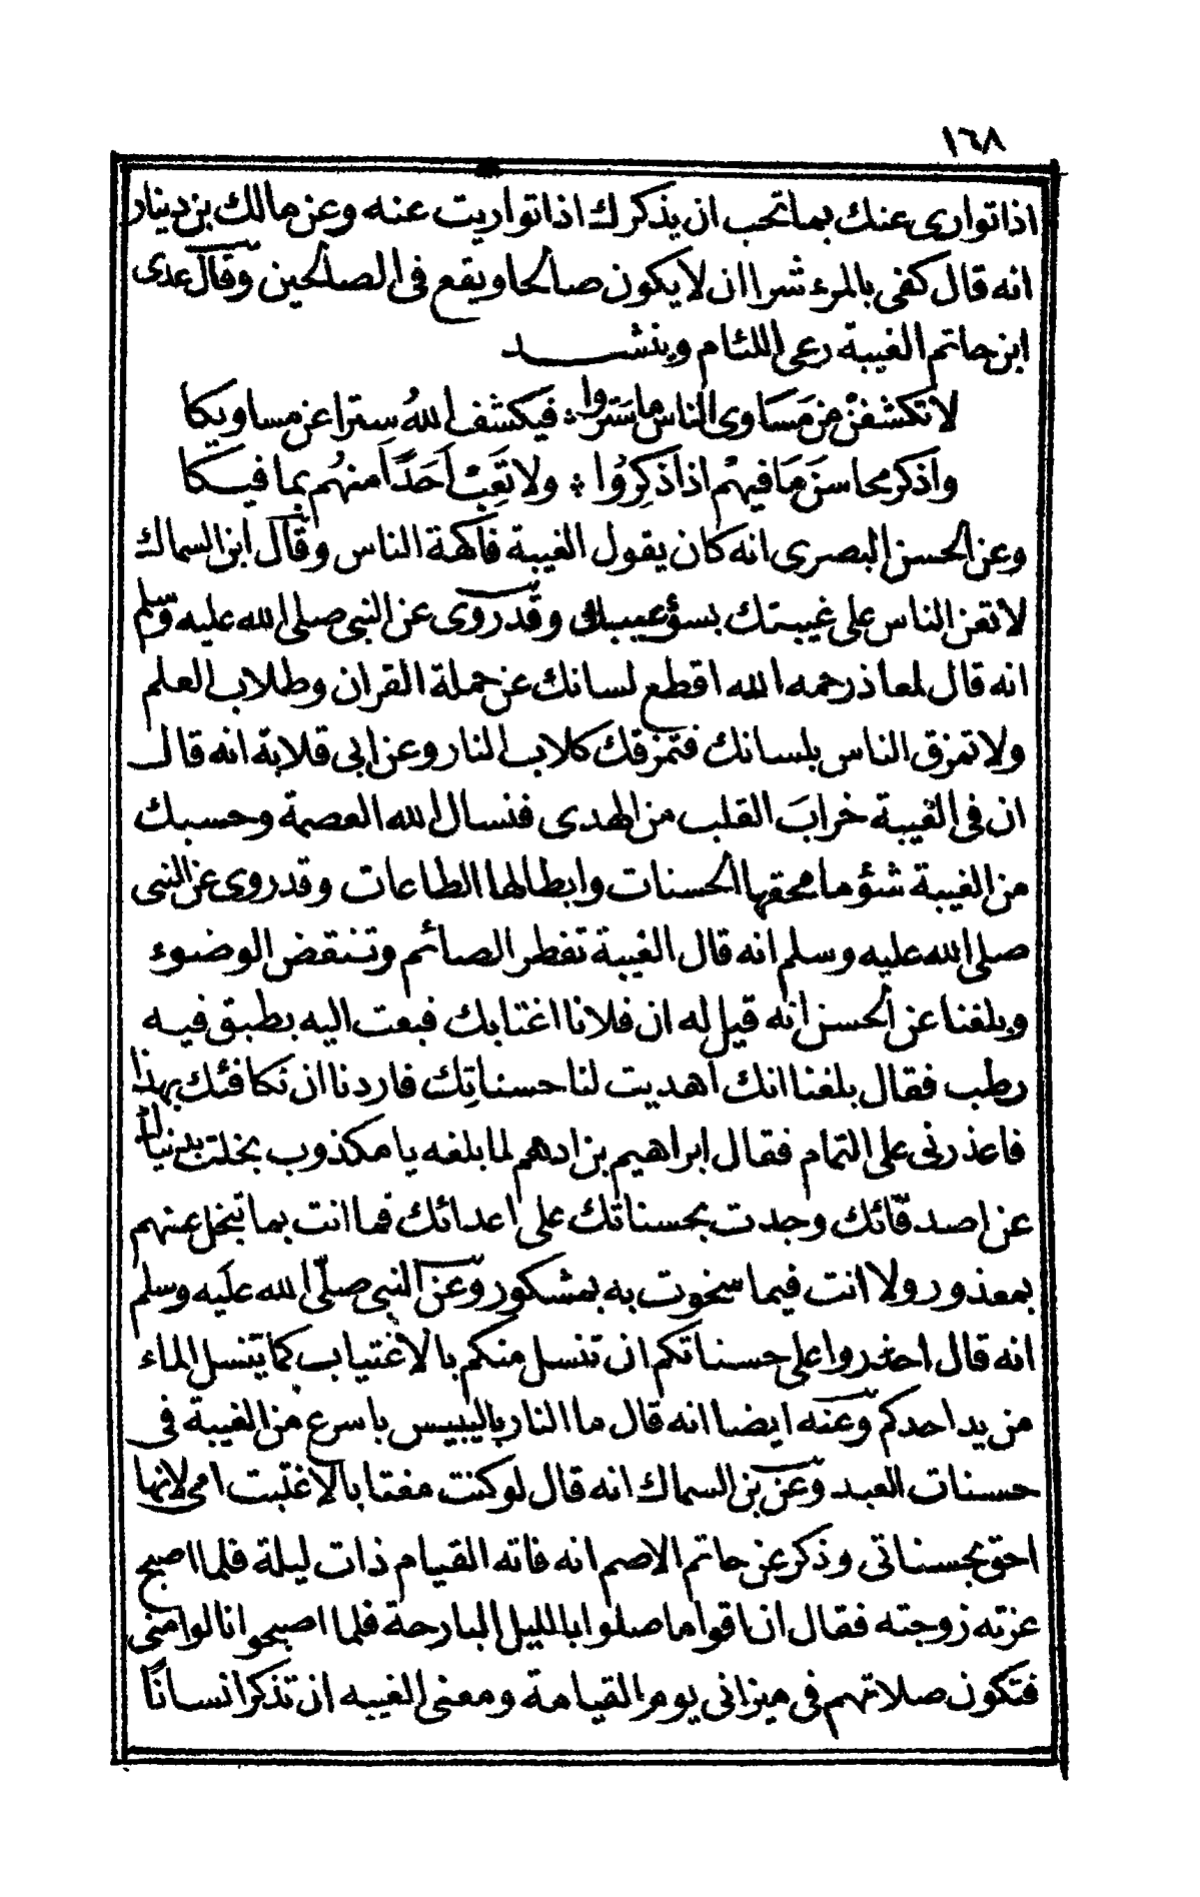 ١٦٨
اذا توارى عنك بما تحب ان يذكرك اذا تواريت عنه وعن مالك بن دينار
انه قال كفى بالمرء شرا ان لا يكون صالحا ويقع فى الصالحين وقال عدى
ابن حاتم الغيبة رعى اللئام وينشد
لا تكشفنْ من مَسَاوى الناس ما سَتَروا ؛ فيكشف اللهُ سِترا عن مساويكا
واذكر محاسنَ مَا فيهُم اذا ذكِرُوا ؛ ولا تَعِبْ اَحَدًا منهُم بما فيكا
وعن الحسن البصرى انه كان يقول الغيبة فاكهة الناس وقال ابن السماك
لا تعن الناس على غيبتك بسؤ عيبك وقد روى عن النبى صلى الله عليه وسلم
انه قال لمعاذ رحمه الله اقطع لسانك عن حملة القران وطلاب العلم
ولا تمزق الناس بلسانك فتمزقك كلاب النار وعن ابى قلابة انه قال
ان فى الغيبة خرابَ القلب من الهدى فنسال الله العصمة وحسبك
من الغيبة شؤما محقها الحسنات وابطالها الطاعات وقد روى عن النبى
صلى الله عليه وسلم انه قال الغيبة تفطر الصائم وتنقض الوضوء
وبلغنا عن الحسن انه قيل له ان فلانا اغتابك فبعث اليه بطبق فيه
رطب فقال بلغنا انك اهديت لنا حسناتِك فاردنا ان نكافئك بهذا
فاعذرنى على التمام فقال ابراهيم بن ادهم لما بلغه يا مكذوب بخلت بدنياك
عن اصدقائك وجدت بحسناتك على اعدائك فما انت بما تبخل عنهم
بمعذور ولا انت فيما سخوت به بمشكور وعن النبى صلى الله عليه وسلم
انه قال احذروا على حسناتكم ان تنسل منكم بالاغتياب كما يتنسل الماء
من يد احدكم وعنه ايضا انه قال ما النار باليبيس باسرع من الغيبة فى
حسنات العبد وعن بن السماك انه قال لو كنت مغتابا لاغتبت امى لانها
احق بحسناتى وذكر عن حاتم الاصم انه فاته القيام ذات ليلة فلما اصبح
عزته زوجته فقال ان اقواما صلوا بالليل البارحة فلما اصبحوا نالوا منى
فتكون صلاتهم فى ميزانى يوم القيامة ومعنى الغيبه ان تذكر انسانًا